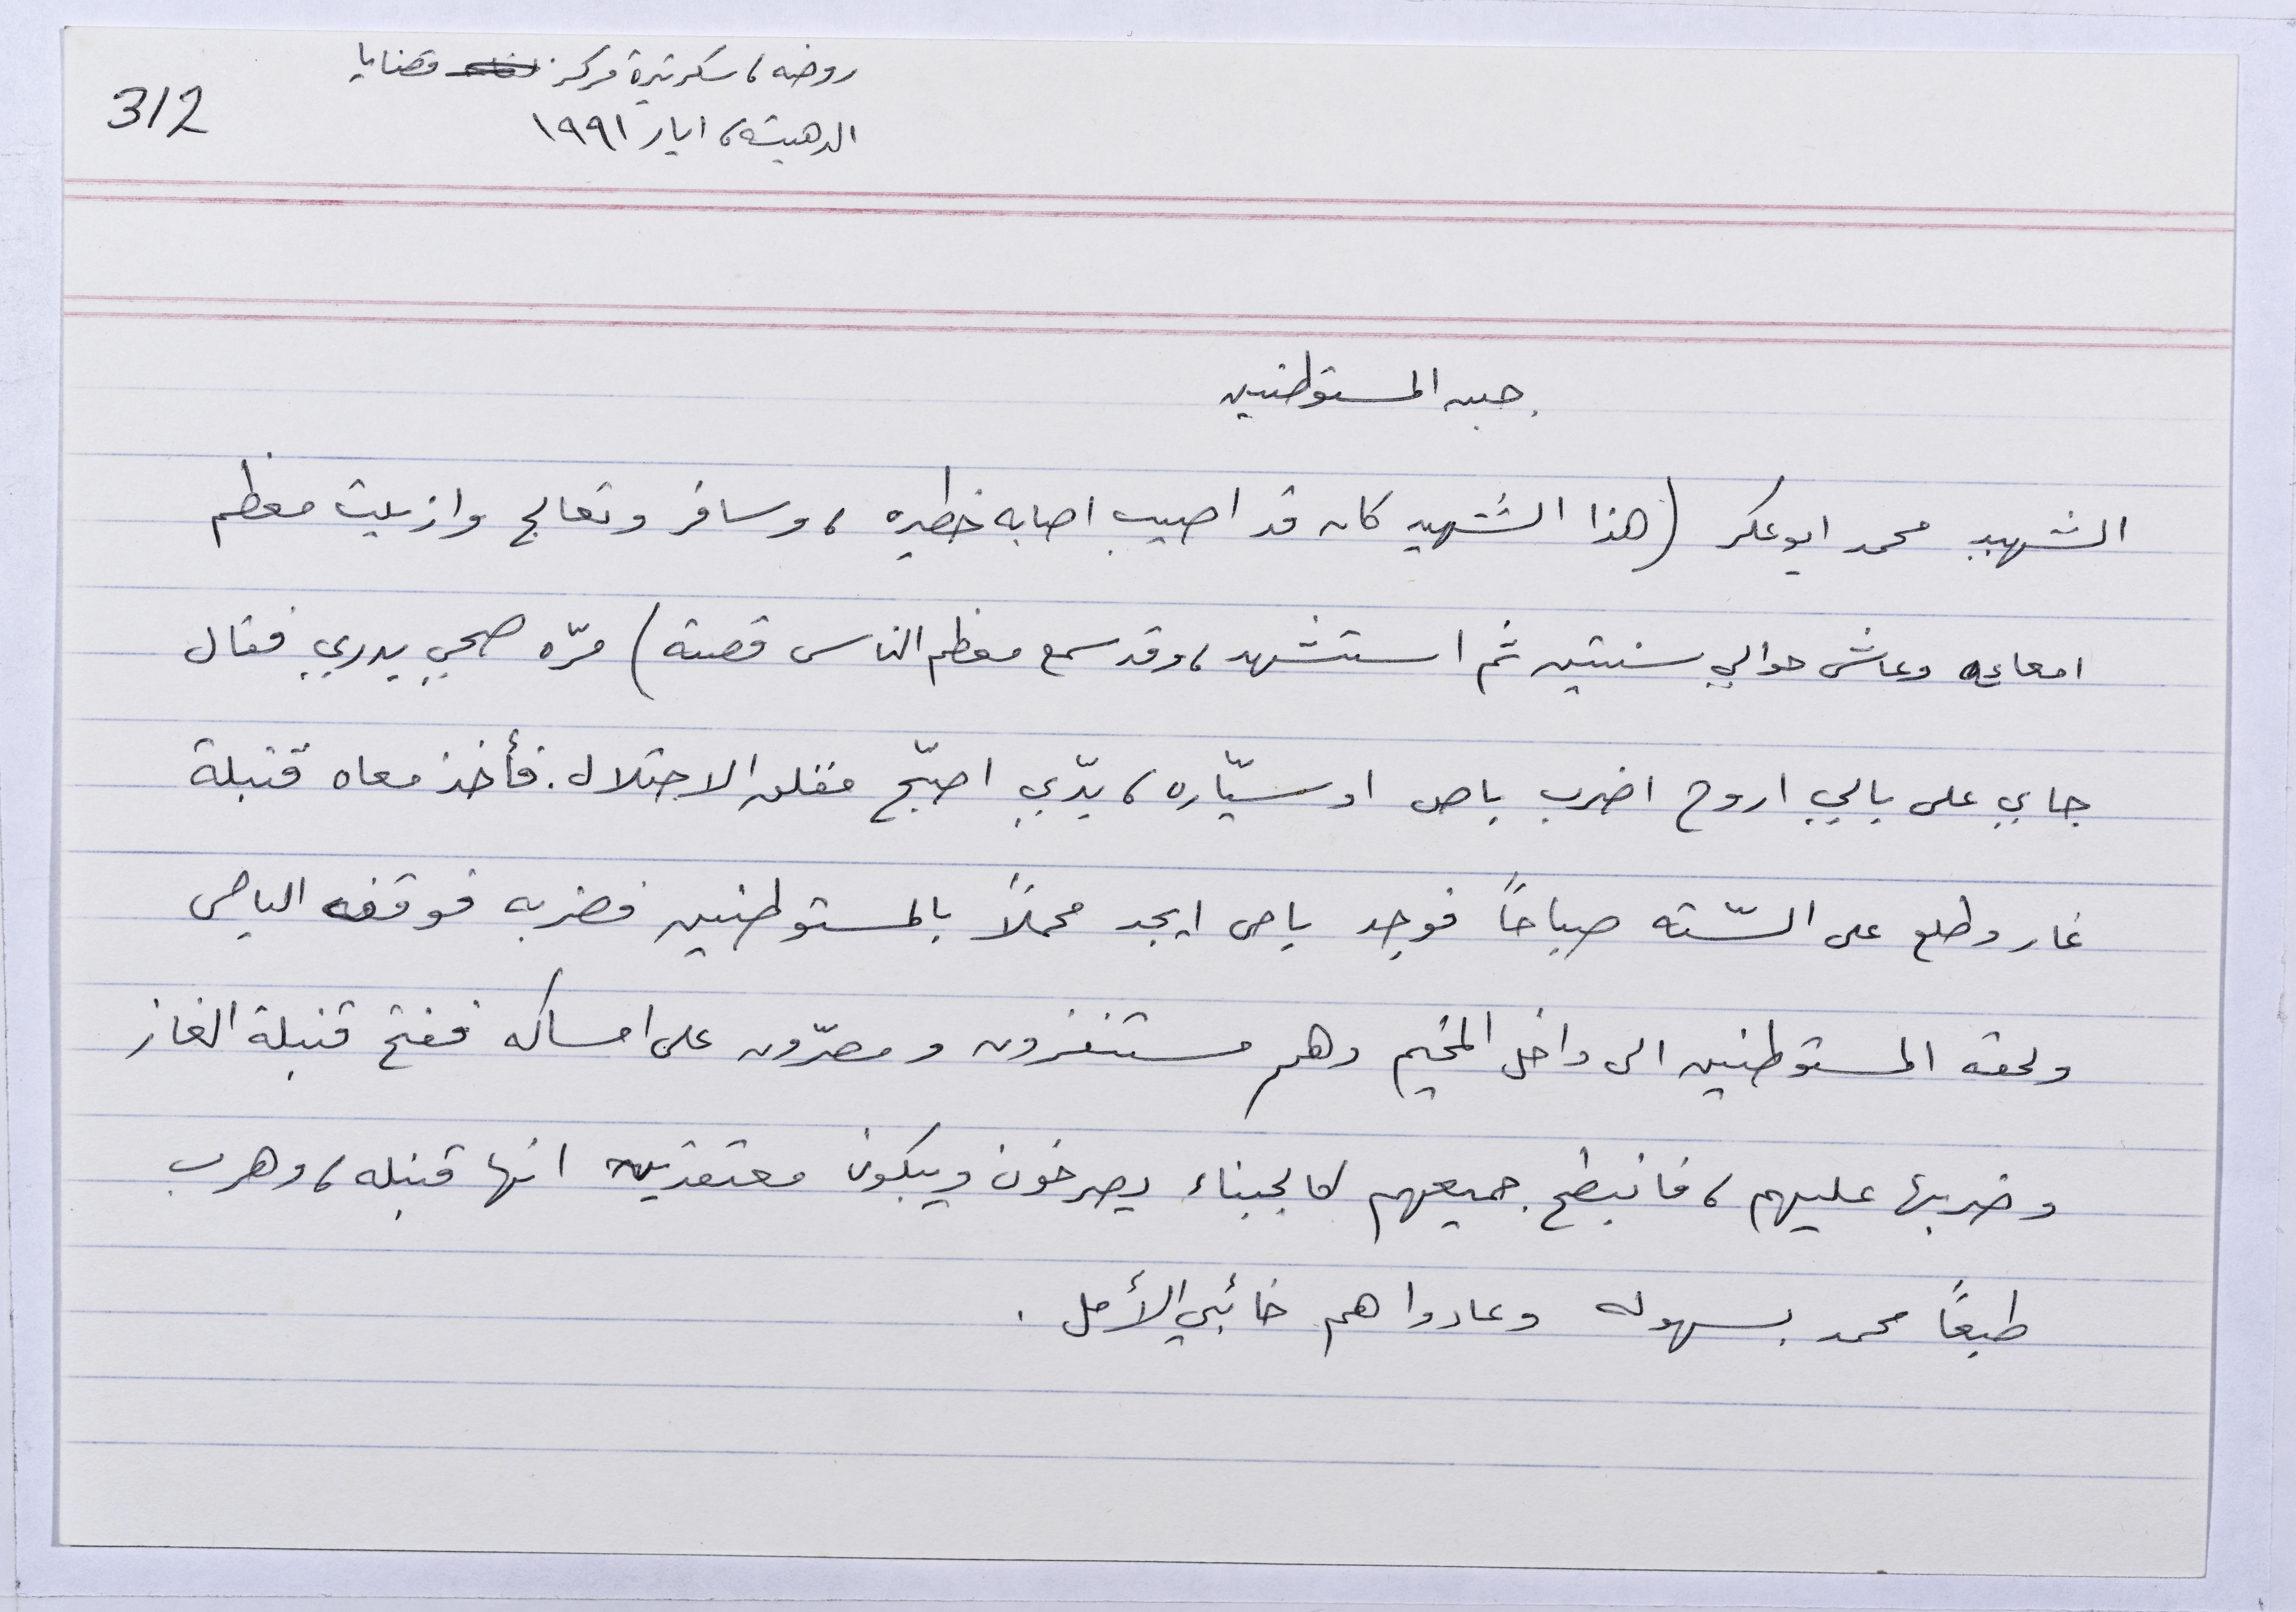 روضه، سكرتيرة مركز قضايا
312
الدهيشه، ايار ١٩٩١
جبن المستوطنين
الشهيد محمد ابو عكر (هذا الشهيد كان قد اصيب اصابه خطيره، وسافر وتعالج وازيلت معظم
امعاءه وعاش حوالي سنتين ثم استشهد، وقد سمع معظم الناس قصته) مرّه صحي بدري فقال
جاي على بالي اروح اضرب باص او سيّاره، بدّي اصبّح مفلق الاحتلال. فأخذ معاه قنبلة
غاز وطلع على السّته صباحاً فوجد باص ايجد محملاً بالمستوطنين فضربه فوقفه الباص
ولحقه المستوطنين الى داخل المخيم وهم مستنفزون ومصرّون على امساكه ففتح قنبلة الغاز
وضربها عليهم، فانبطح جميعهم كالجبناء يصرخون ويبكون معتقدين انها قنبله، وهرب
طبعاً محمد بسهوله وعادوا هم خائبي الأمل.